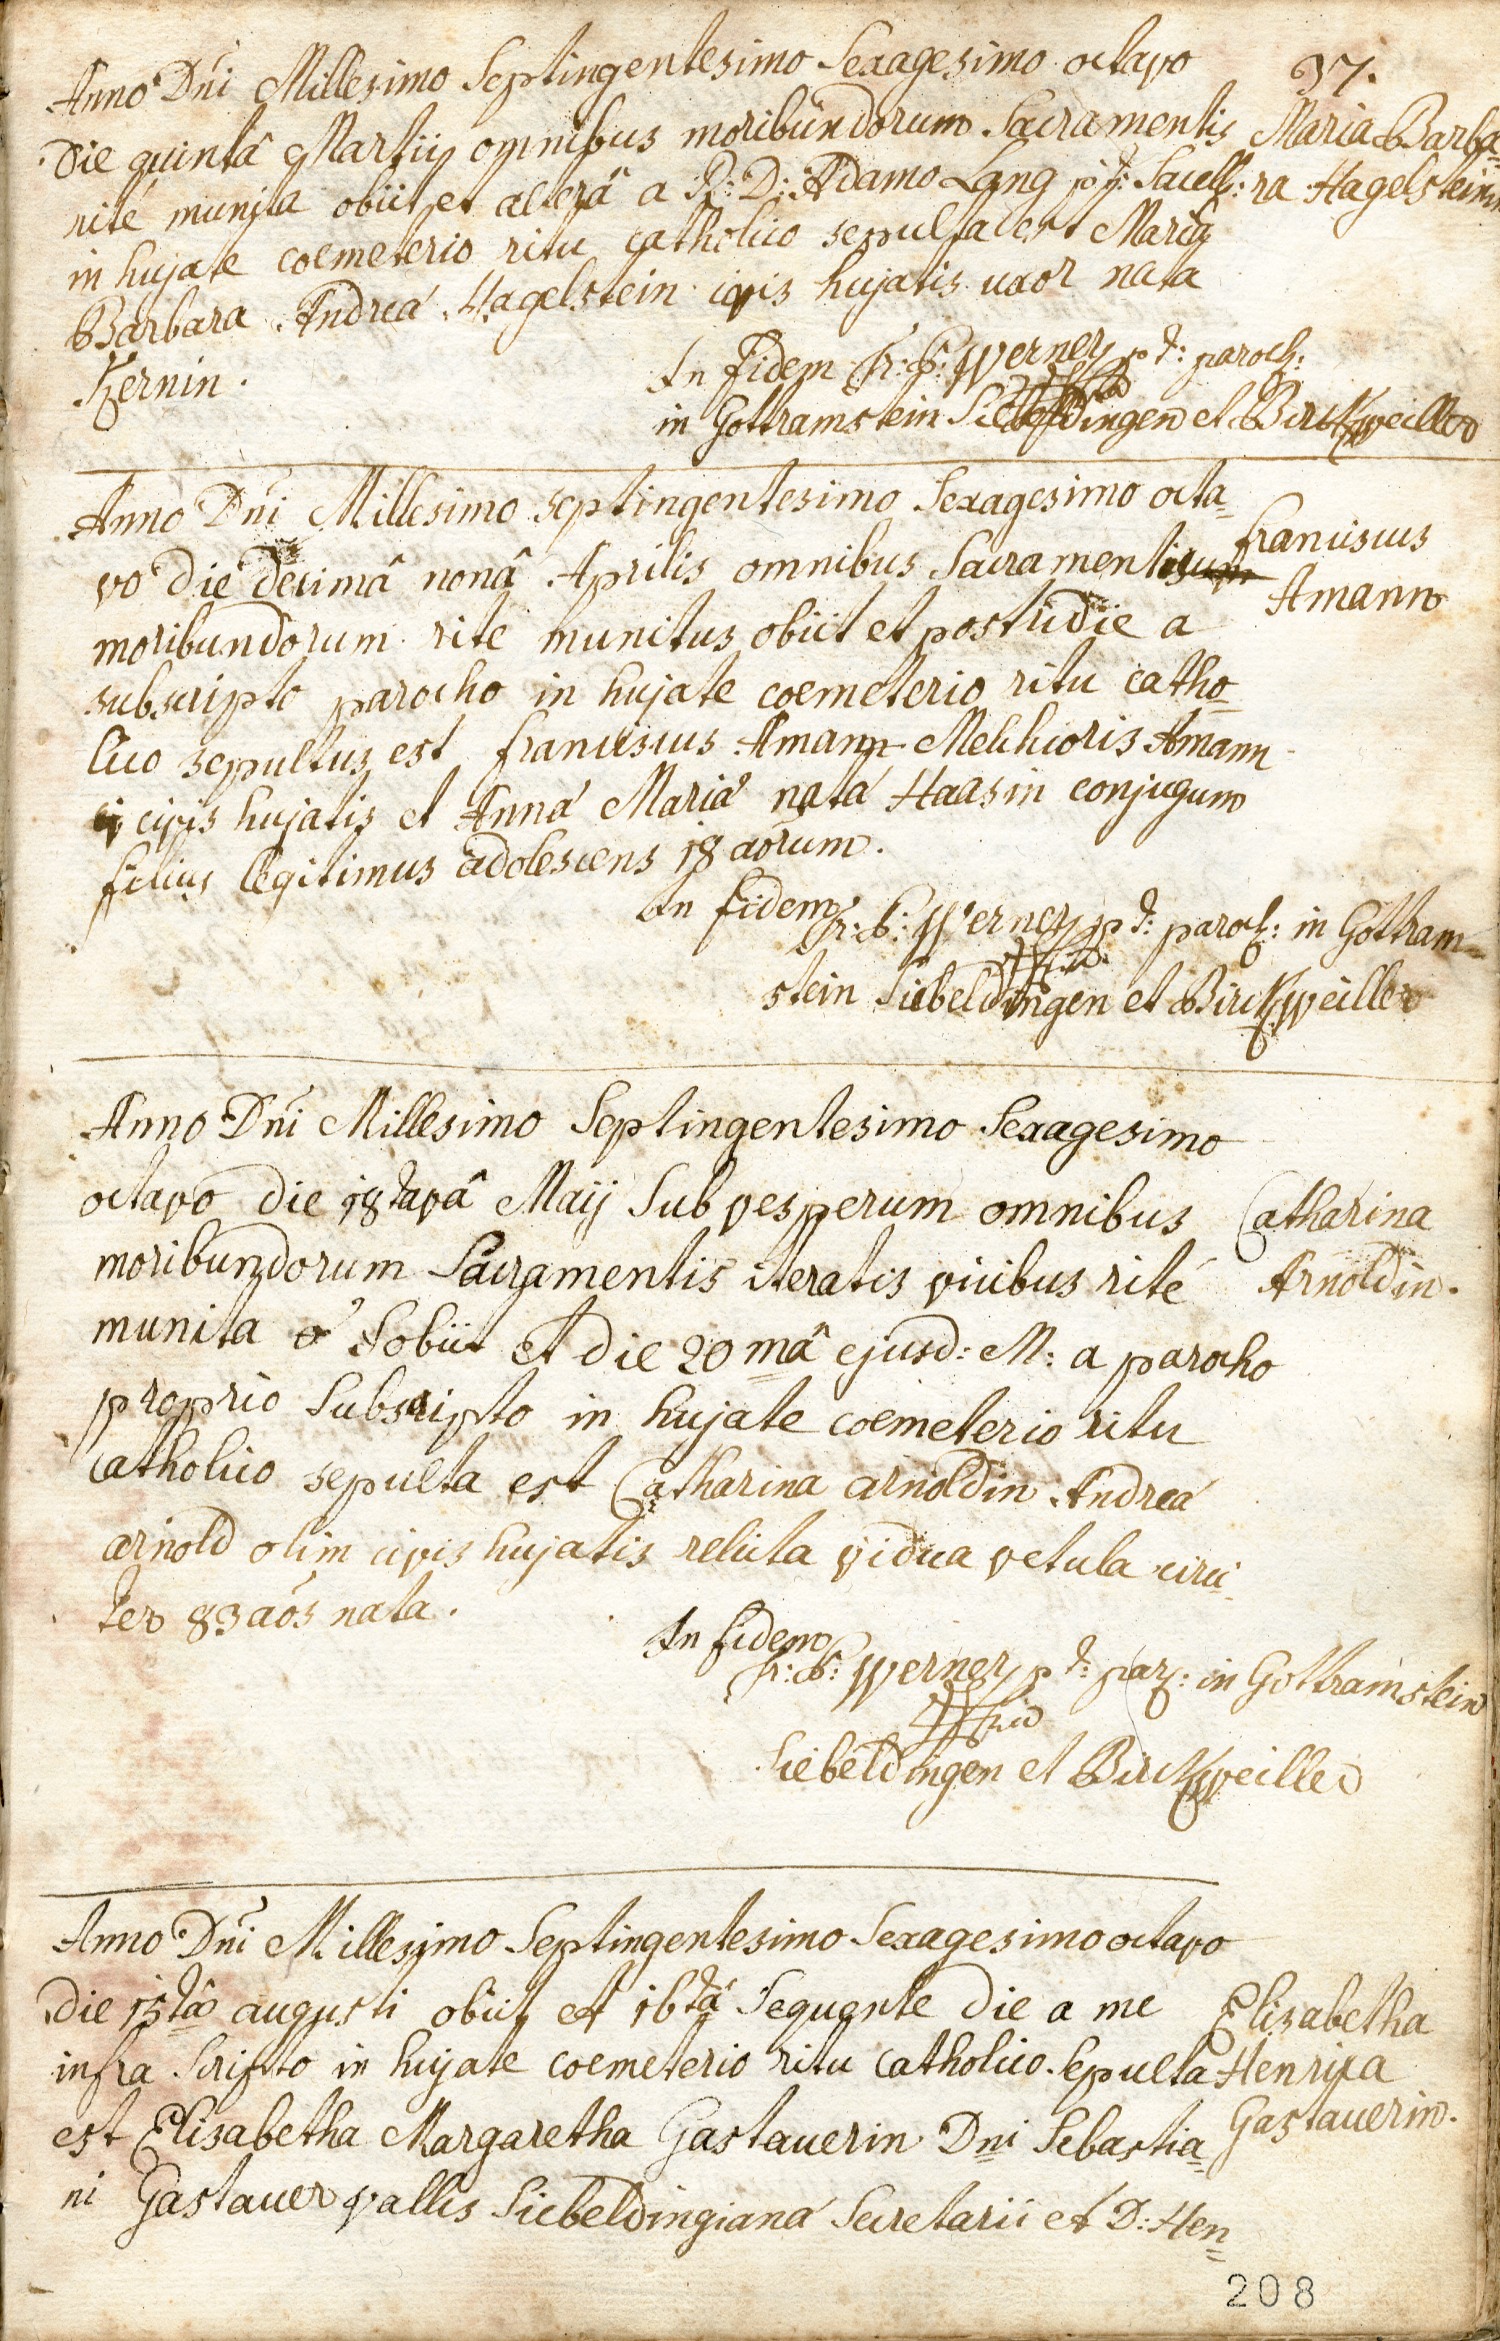 37.
Anno Dni Millesimo Septingentesimo Sexagesimo octavo
die quintâ Martij omnibus moribundorum Sacramentis
Maria Barba=
rité munita obiit et alterâ a R: D: Adamo Lang p.t: Sacell:
ra Hagelsteinin
in hujate coemeterio ritu catholico sepulta est Maria
Barbara Andreá Hagelstein civis hujatis uxor nata
Kernin.
In fidem Fr: P: Werner p.t: paroch:
in Gottramstein Siebeldingen et Birckweiller
Anno Dni Millesimo septingentesimo Sexagesimo octa=
vo die decimâ nonâ Aprilis omnibus Sacramentis
franciscus
Amann
moribundorum rite munitus obiit et postridie a
subscripto parocho in hujate coemeterio ritu catho=
lico sepultus est franciscus Amann Melchioris Amann
civis hujatis et Anná Mariá natá Haasin conjugum
filius legitimus adolescens 18 aórum.
In fidem
Fr: P: Werner p.t: paroch: in Gottram=
stein Siebeldingen et Birckweiller
Anno Dni Millesimo Septingentesimo Sexagesimo
octavo die 18tavâ Maij Sub vesperum omnibus
Catharina
moribundorum Sacramentis iteratis vicibus rité
Arnoldin.
munita obiit et die 20mâ ejusd: M: a parocho
proprio Subscripto in hujate coemeterio ritu
catholico sepulta est Catharina arnoldin Andreá
arnold olim civis hujatis relicta vidua vetula circi=
ter 83 aós nata.
In fidem
Fr: P: Werner p.t: par: in Gottramstein
Siebeldingen et Birckweiller
Anno Dni Millesimo Septingentesimo Sexagesimo octavo
die 15tâ augusti obiit et 16tâ Sequente die a me
Elisabetha
infra Scripto in hujate coemeterio ritu catholico Sepulta
Henrica
est Elisabetha Margaretha Gastauerin Dni Sebastia=
Gastauerin.
ni Gastauer vallis Siebeldingianá Secretarii et D: Hen=
208